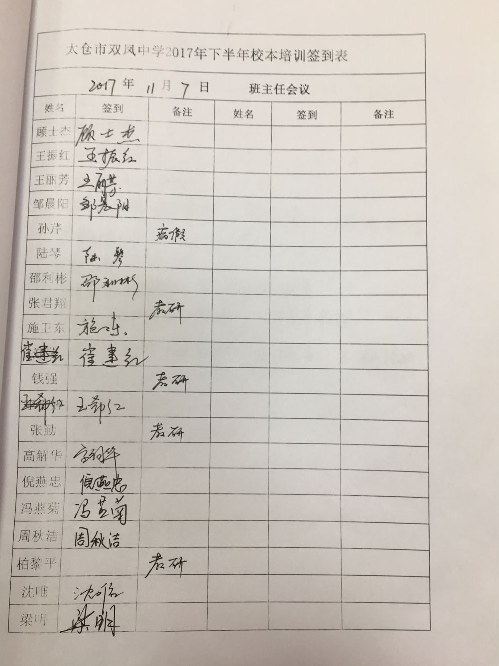 太仓市双凤中学2017年下半年校本培训签到表
2017 年 11 月 7 日 班主任会议
姓名 签到 备注 姓名 签到 备注
顾士杰 顾士杰
王振红 王振红
王丽芳 王丽芳
邹晨阳 邹晨阳
孙芹 病假
陆琴 陆琴
邵利彬 邵利彬
张君翔 教研
施卫东 施卫东
崔建红 崔建红
钱强 教研
王郁红 王郁红
张勤 教研
高解华
倪燕忠 倪燕忠
冯燕菊 冯燕菊
周秋洁 周秋洁
柏黎平 教研
沈唯 沈唯
梁明 梁明